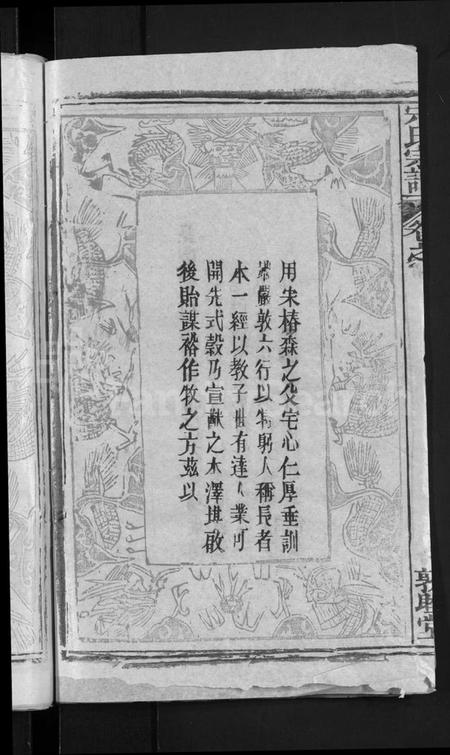 宋氏宗譜
卷之
敦睦堂
用朱椿森之父宅心仁厚垂訓
嚴敦六行以物躬人稱長者
本一經以教子世有達人業可
開先式穀乃宣猷之本澤堪啟
後貽謀裕作牧之方茲以